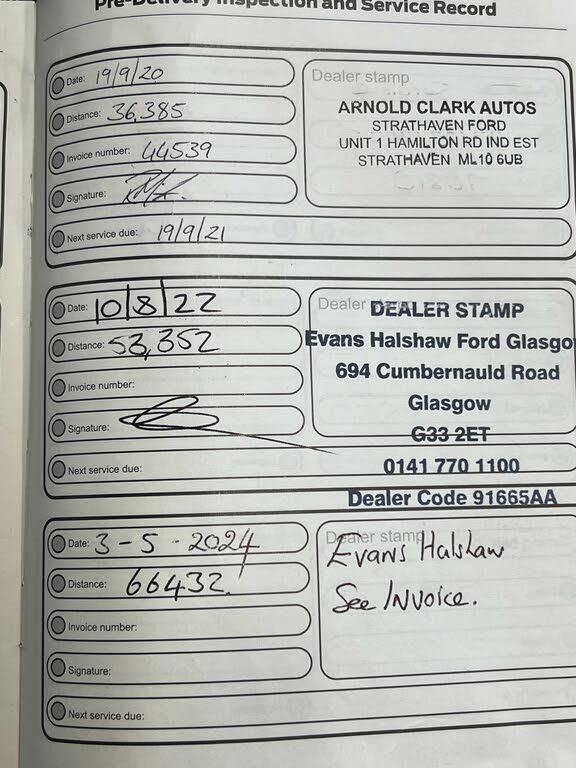 Pre-Delivery Inspection and Service Record
Date: 19/9/20
Distance: 36,385
Invoice number: 44539
Signature:
Next service due: 19/9/21
Dealer stamp
ARNOLD CLARK AUTOS
STRATHAVEN FORD
UNIT 1 HAMILTON RD IND EST
STRATHAVEN ML10 6UB
Date: 10/8/22
Distance: 53,352
Invoice number:
Signature:
Next service due:
Dealer
DEALER STAMP
Evans Halshaw Ford Glasgo
694 Cumbernauld Road
Glasgow
G33 2ET
0141 770 1100
Dealer Code 91665AA
Date: 3-5-2024
Distance: 66432.
Invoice number:
Signature:
Next service due:
Dealer stamp
Evans Halshaw
See INvoice.